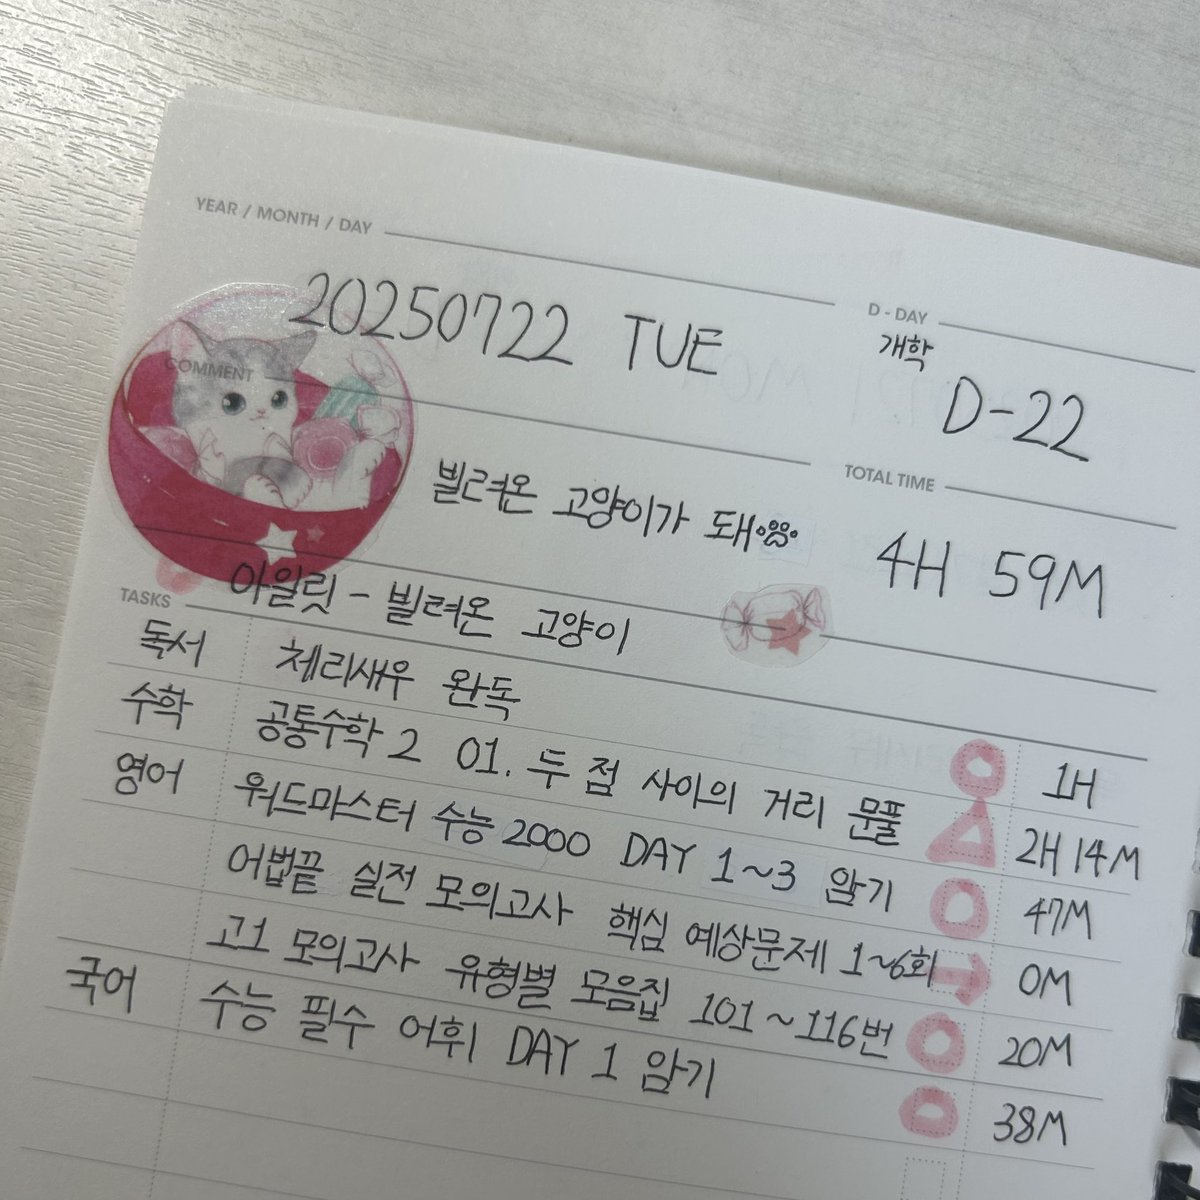 YEAR / MONTH / DAY
20250722 TUE
D - DAY
개학
D-22
COMMENT
빌려온 고양이가 돼
아일릿 - 빌려온 고양이
TOTAL TIME
4H 59M
TASKS
독서 체리새우 완독 1H
수학 공통수학 2 01. 두 점 사이의 거리 문풀 2H 14M
영어 워드마스터 수능 2000 DAY 1~3 암기 47M
어법끝 실전 모의고사 핵심 예상문제 1~6회 0M
고1 모의고사 유형별 모음집 101~116번 20M
국어 수능 필수 어휘 DAY 1 암기 38M